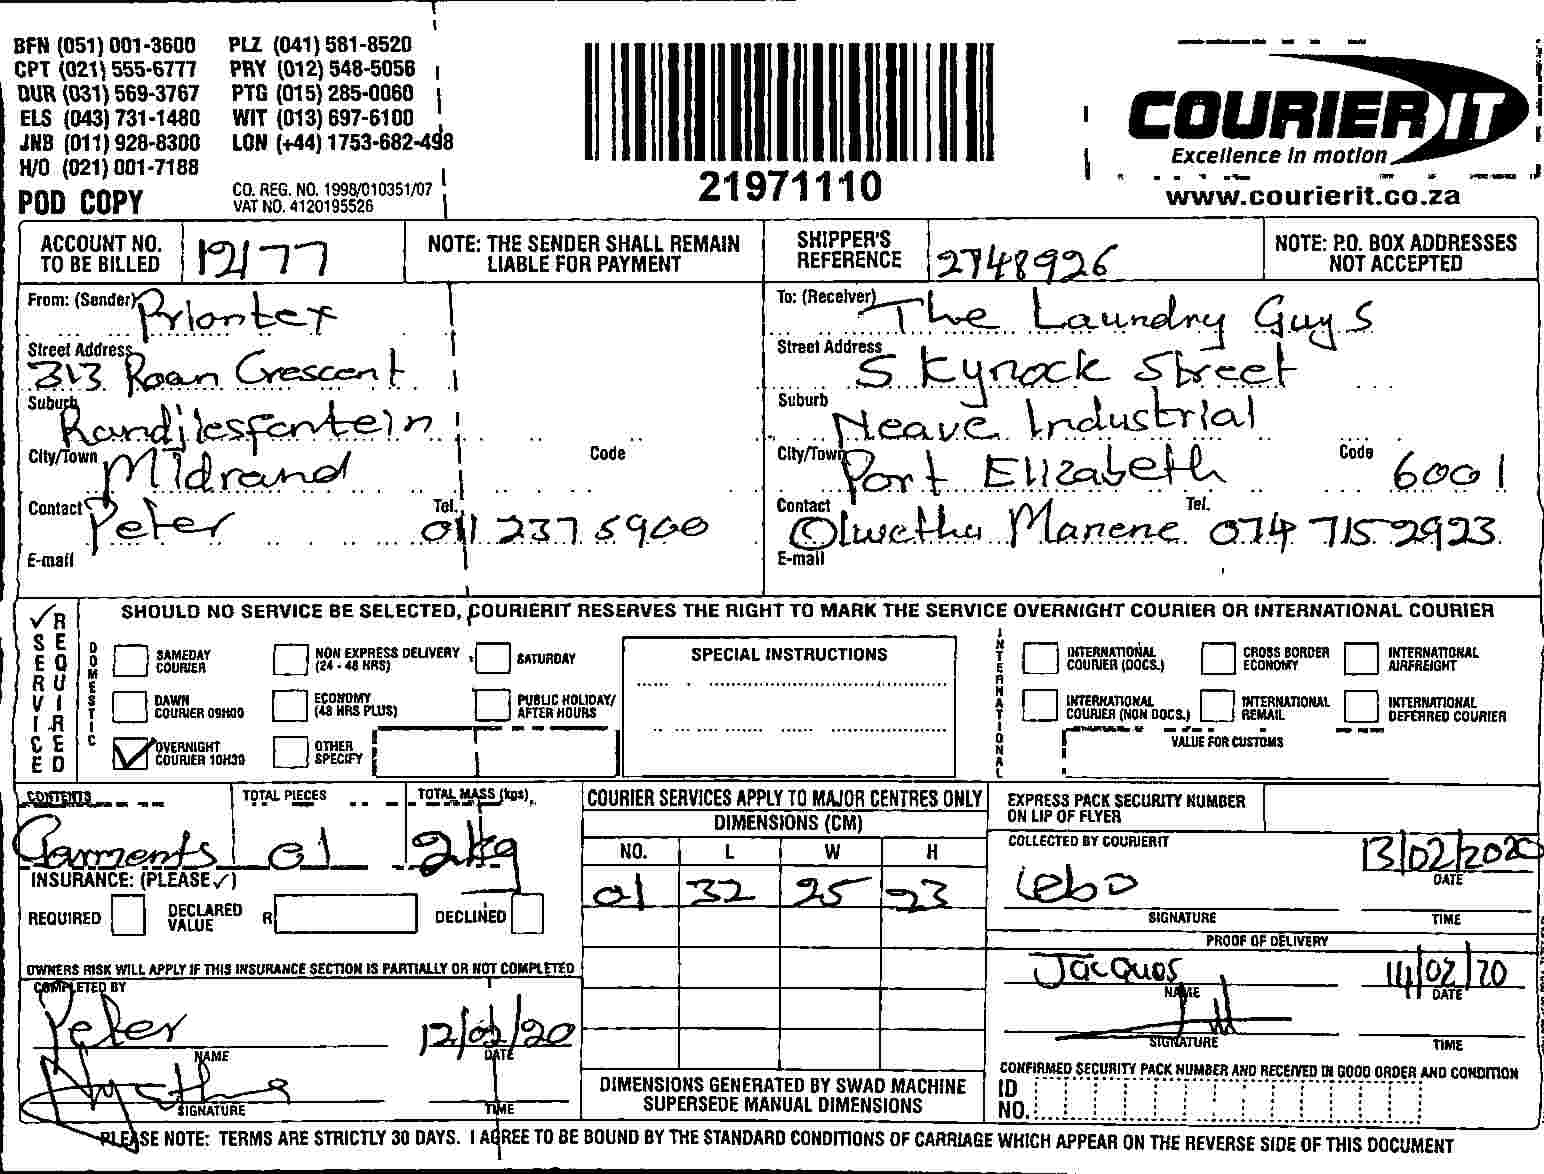 BFN (051) 001-3600 PLZ (041) 581-8520
CPT (021) 555-6777 PRY (012) 548-5056
DUR (031) 569-3767 PTG (015) 285-0060
ELS (043) 731-1480 WIT (013) 697-6100
JNB (011) 928-8300 LON (+44) 1753-682-498
H/O (021) 001-7188
POD COPY
CO. REG. NO. 1998/010351/07
VAT NO. 4120195526
21971110
COURIER IT
Excellence in motion
www.courierit.co.za
ACCOUNT NO. TO BE BILLED 12177
NOTE: THE SENDER SHALL REMAIN LIABLE FOR PAYMENT
SHIPPER'S REFERENCE 2748926
NOTE: P.O. BOX ADDRESSES NOT ACCEPTED
From: (Sender) Priontex
Street Address 313 Roan Crescent
Suburb Randjiesfontein
City/Town Midrand Code
Contact Peter Tel. 011 237 5900
E-mail
To: (Receiver) The Laundry Guys
Street Address 5 Kynock Street
Suburb Neave Industrial
City/Town Port Elizabeth Code 6001
Contact Olwethu Manene Tel. 074 715 2923
E-mail
SERVICE REQUIRED
SHOULD NO SERVICE BE SELECTED, COURIERIT RESERVES THE RIGHT TO MARK THE SERVICE OVERNIGHT COURIER OR INTERNATIONAL COURIER
DOMESTIC
SAMEDAY COURIER
NON EXPRESS DELIVERY (24 - 48 HRS)
SATURDAY
DAWN COURIER 09H00
ECONOMY (48 HRS PLUS)
PUBLIC HOLIDAY/ AFTER HOURS
OVERNIGHT COURIER 10H30
OTHER SPECIFY
SPECIAL INSTRUCTIONS
INTERNATIONAL
INTERNATIONAL COURIER (DOCS.)
CROSS BORDER ECONOMY
INTERNATIONAL AIRFREIGHT
INTERNATIONAL COURIER (NON DOCS.)
INTERNATIONAL REMAIL
INTERNATIONAL DEFERRED COURIER
VALUE FOR CUSTOMS
CONTENTS TOTAL PIECES TOTAL MASS (kgs)
Garments 01 2kg
INSURANCE: (PLEASE ✓)
REQUIRED DECLARED VALUE R DECLINED
OWNERS RISK WILL APPLY IF THIS INSURANCE SECTION IS PARTIALLY OR NOT COMPLETED
COMPLETED BY
Peter 12/02/20
NAME DATE
SIGNATURE TIME
COURIER SERVICES APPLY TO MAJOR CENTRES ONLY
DIMENSIONS (CM)
NO. L W H
01 32 25 23
DIMENSIONS GENERATED BY SWAD MACHINE SUPERSEDE MANUAL DIMENSIONS
EXPRESS PACK SECURITY NUMBER ON LIP OF FLYER
COLLECTED BY COURIERIT
Lebo 13/02/2020
DATE
SIGNATURE TIME
PROOF OF DELIVERY
Jacques 14/02/20
NAME DATE
SIGNATURE TIME
CONFIRMED SECURITY PACK NUMBER AND RECEIVED IN GOOD ORDER AND CONDITION
ID NO.
PLEASE NOTE: TERMS ARE STRICTLY 30 DAYS. I AGREE TO BE BOUND BY THE STANDARD CONDITIONS OF CARRIAGE WHICH APPEAR ON THE REVERSE SIDE OF THIS DOCUMENT